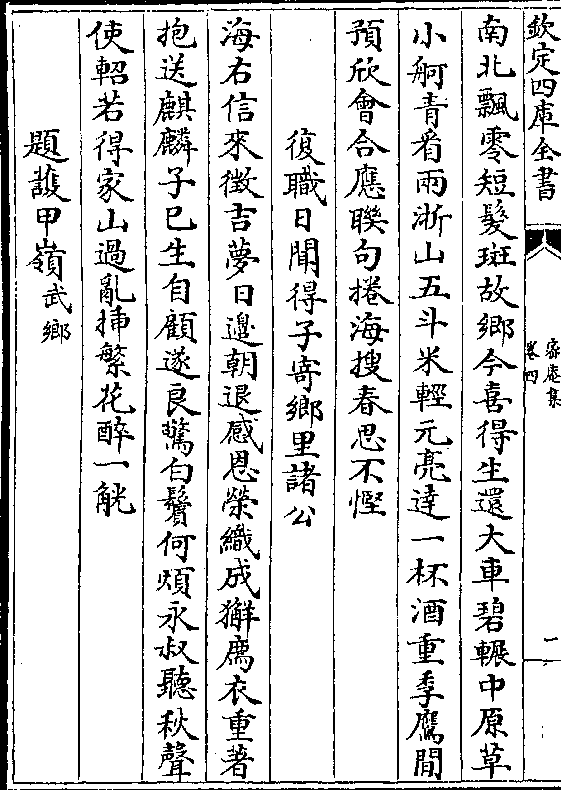 欽定四庫全書
密庵集
卷四
一
南北飄零短髮斑故鄉今喜得生還大車碧輾中原草
小舸青看兩浙山五斗米輕元亮達一杯酒重季鷹間
預欣會合應聯句捲海搜春思不慳
復職日聞得子寄鄉里諸公
海右信來徵吉夢日邉朝退感恩榮織成獬廌衣重著
抱送麒麟子已生自顧遂良驚白鬢何煩永叔聽秋聲
使軺若得家山過亂揷繁花醉一觥
題護甲嶺武鄉